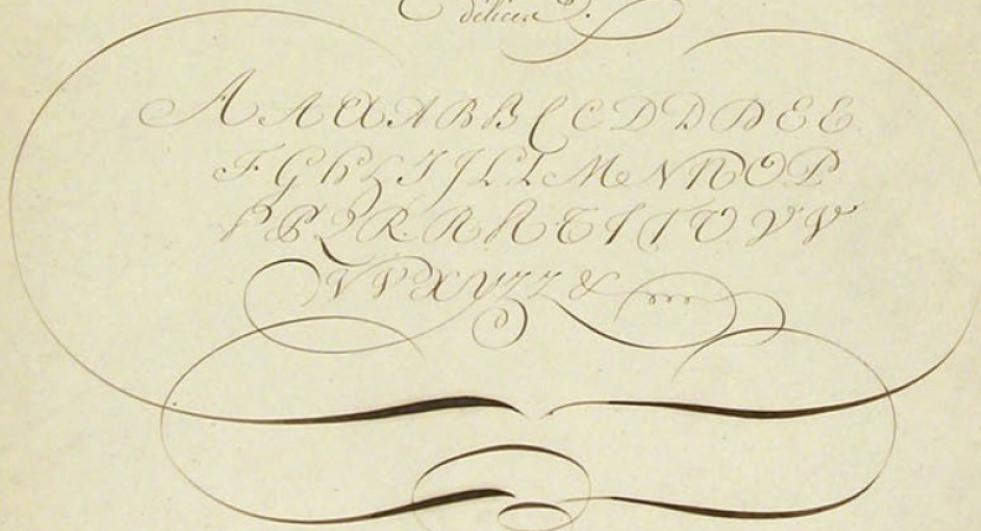 délices.
A A A A B B C C D D D E E
F G H H I J L L M N N O P
P P Q R R R T T T V V V
V V X Y Z Z &